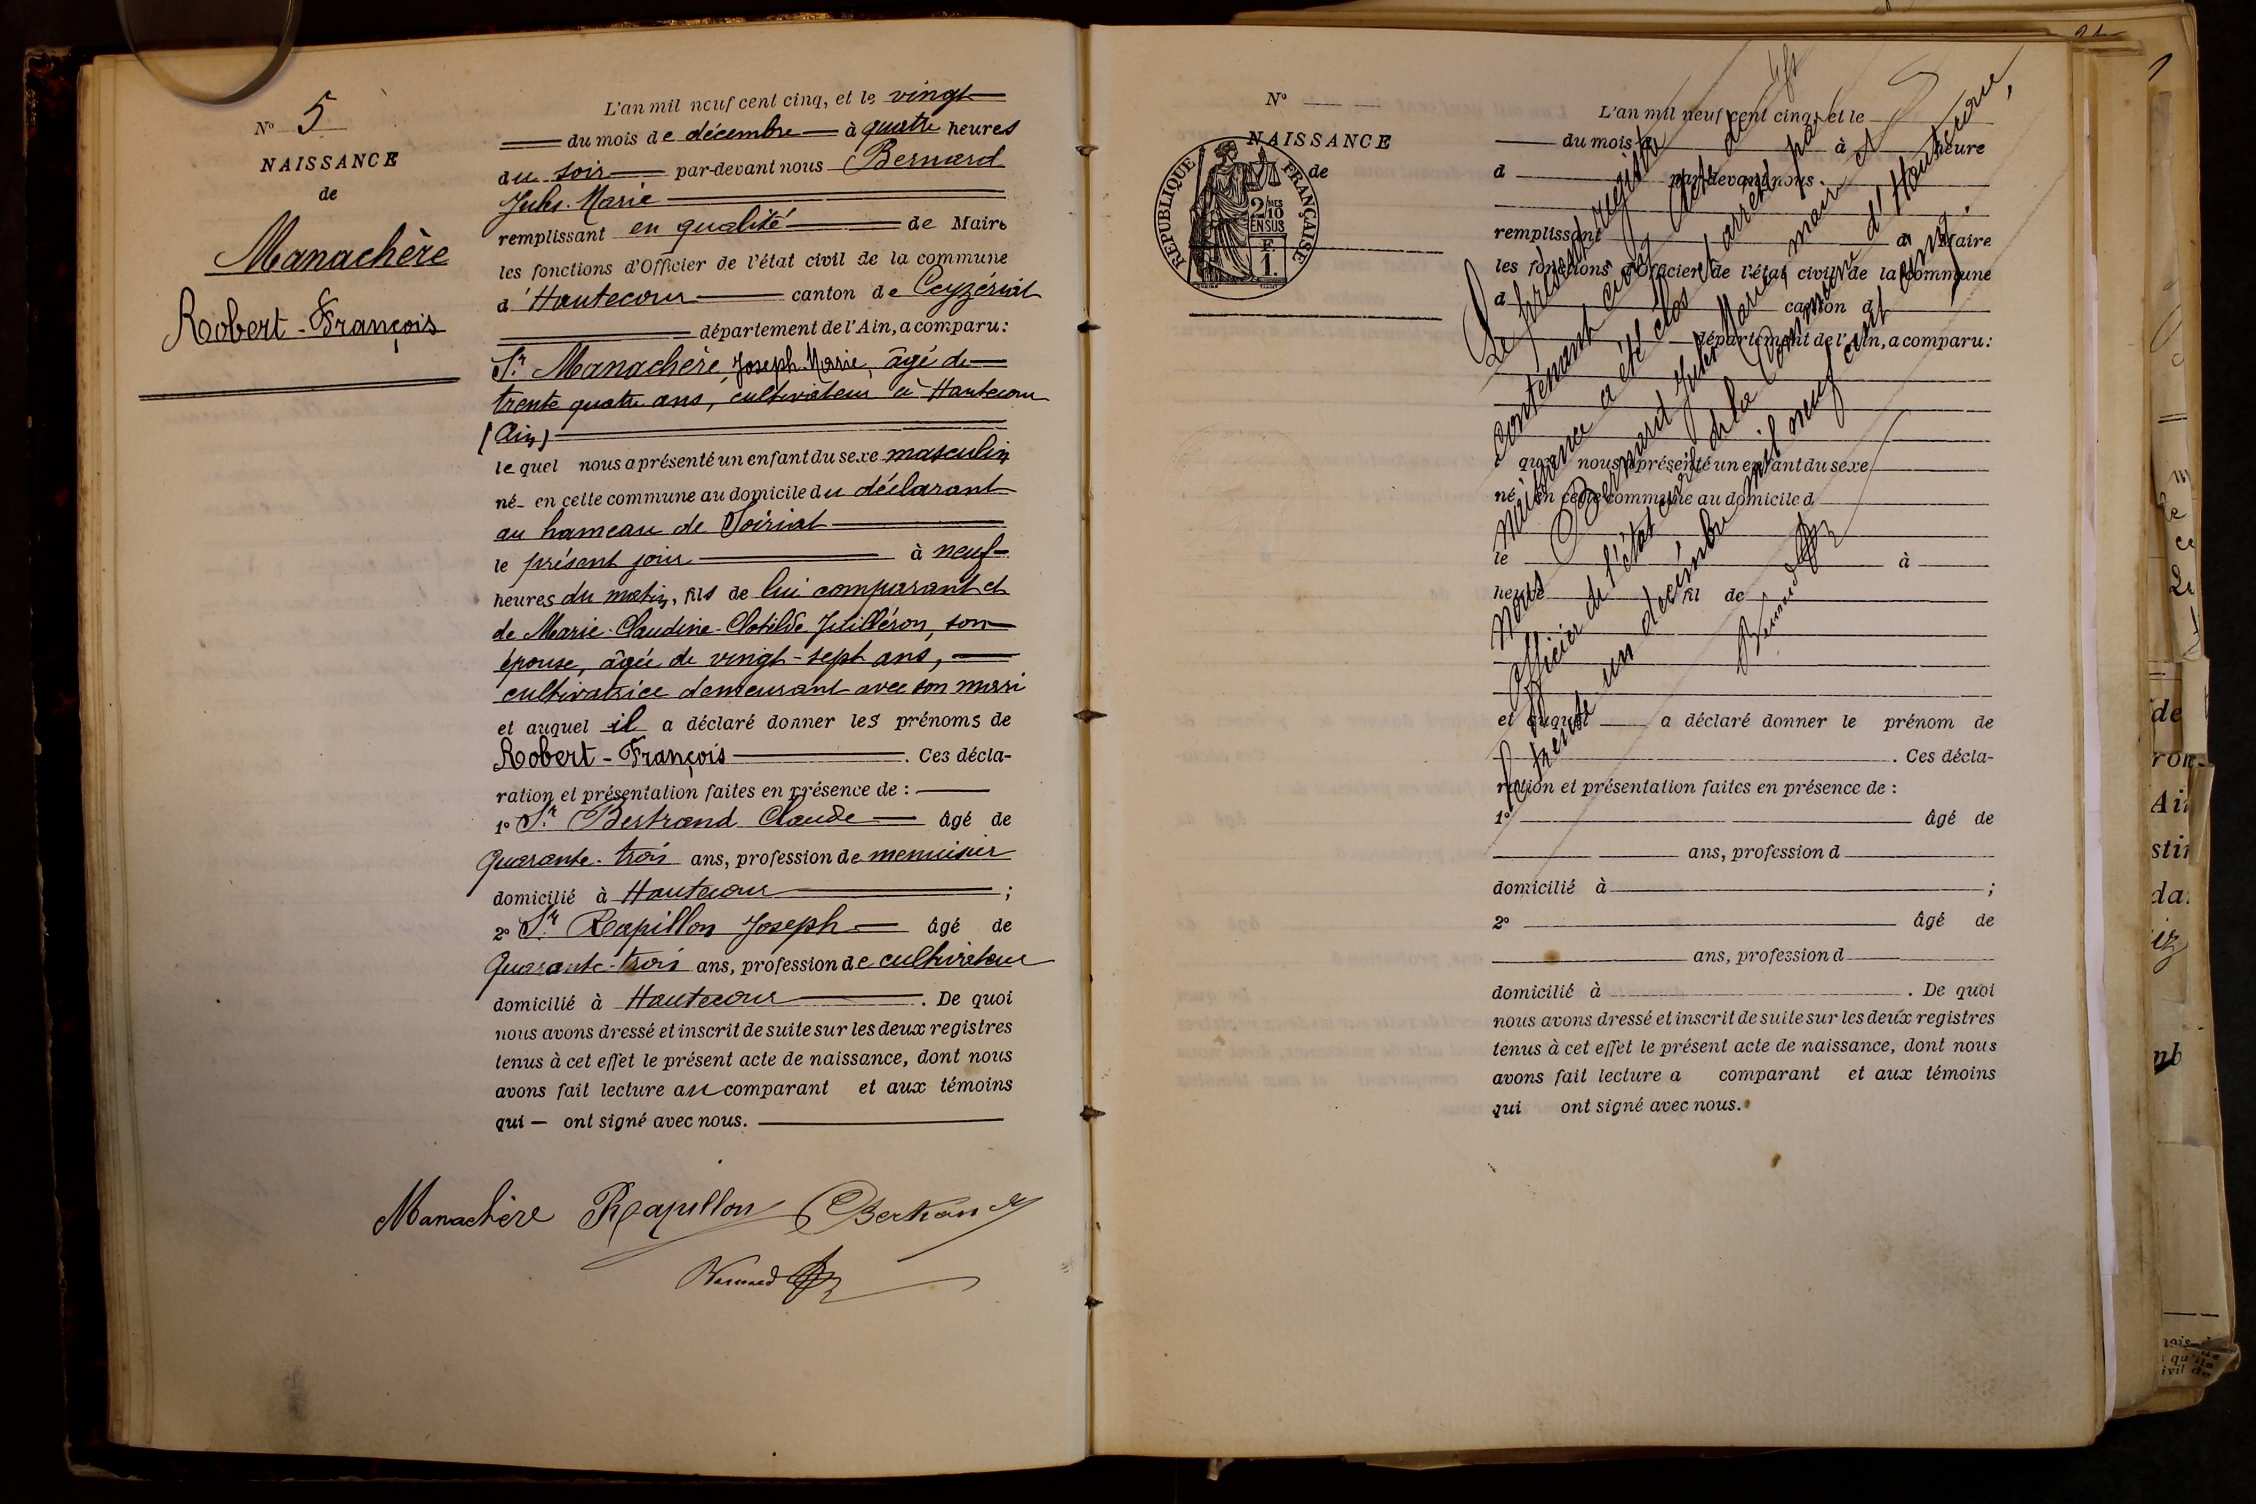 N° 5
NAISSANCE
de
Manachère
Robert-François
L'an mil neuf cent cinq, et le vingt
du mois de décembre à quatre heures
du soir par-devant nous Bernard
Jules-Marie
remplissant en qualité de Maire
les fonctions d'Officier de l'état civil de la commune
d'Hautecour canton de Ceyzériat
département de l'Ain, a comparu:
Sr Manachère, Joseph-Marie, âgé de
trente quatre ans, cultivateur à Hautecour
(Ain)
lequel nous a présenté un enfant du sexe masculin
né en cette commune au domicile du déclarant
au hameau de Soiriat
le présent jour à neuf
heures du matin, fils de lui comparant et
de Marie-Claudine-Clotilde Juilléron, son
épouse, âgée de vingt-sept ans,
cultivatrice demeurant avec son mari
et auquel il a déclaré donner les prénoms de
Robert-François. Ces décla-
ration et présentation faites en présence de :
1° Sr Bertrand Claude âgé de
Quarante-trois ans, profession de menuisier
domicilié à Hautecour ;
2° Sr Rapillon Joseph âgé de
Quarante-trois ans, profession de cultivateur
domicilié à Hautecour. De quoi
nous avons dressé et inscrit de suite sur les deux registres
tenus à cet effet le présent acte de naissance, dont nous
avons fait lecture au comparant et aux témoins
qui — ont signé avec nous.
Manachère Rapillon Bertrand
Bernard
N°
NAISSANCE
de
RÉPUBLIQUE FRANÇAISE
2/10
EN SUS
F.
1.
L'an mil neuf cent cinq, et le
du mois d à heure
d par-devant nous
remplissant d Maire
les fonctions d'Officier de l'état civil de la commune
d canton d
département de l'Ain, a comparu:
l quel nous a présenté un enfant du sexe
né en cette commune au domicile d
le à
heure fil de
et auquel a déclaré donner le prénom de
. Ces décla-
ration et présentation faites en présence de :
1° âgé de
ans, profession d
domicilié à ;
2° âgé de
ans, profession d
domicilié à . De quoi
nous avons dressé et inscrit de suite sur les deux registres
tenus à cet effet le présent acte de naissance, dont nous
avons fait lecture a comparant et aux témoins
qui ont signé avec nous.
Le présent registre
contenant cinq actes de
naissance a été clos et arrêté par
nous Bernard Jules Marie, maire et
officier de l'état civil de la Commune d'Hautecour,
le trente un décembre mil neuf cent cinq.
Bernard